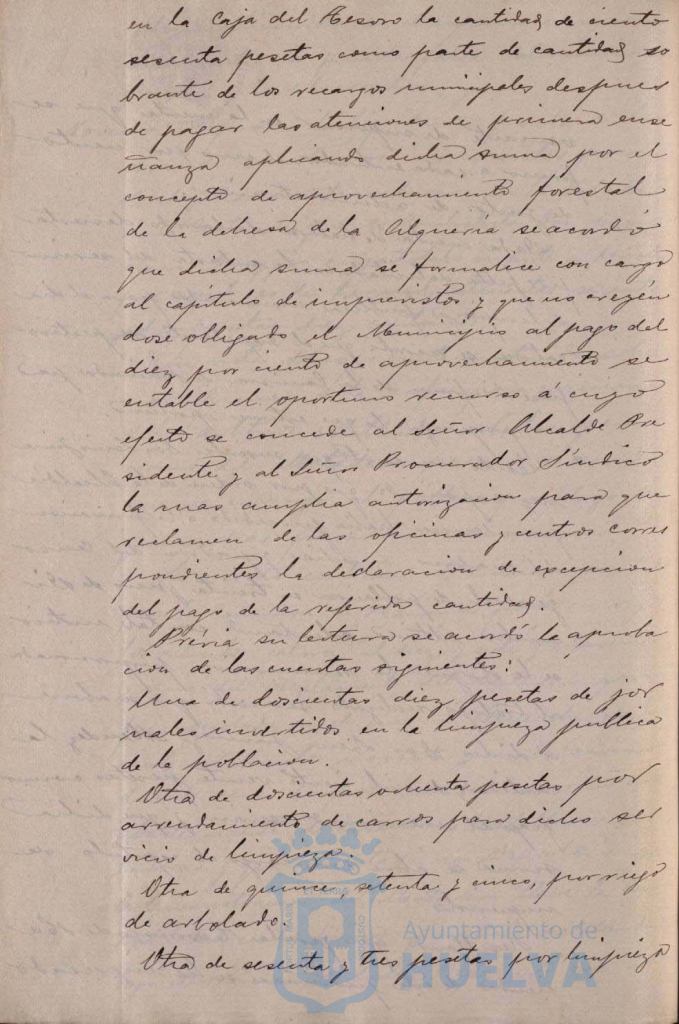 en la Caja del Tesoro la cantidad de ciento
sesenta pesetas como parte de cantidad so
brante de los recargos municipales despues
de pagar las atenciones de primera ense
ñanza aplicando dicha suma por el
concepto de aprovechamiento forestal
de la dehesa de la Alqueria se acordó
que dicha suma se formalice con cargo
al capítulo de imprevistos y que no creyén
dose obligado el Municipio al pago del
diez por ciento de aprovechamiento se
entable el oportuno recurso á cuyo
efecto se concede al Señor Alcalde Pre
sidente y al Señor Procurador Síndico
la mas amplia autorizacion para que
reclamen de las oficinas y centros corres
pondientes la declaracion de excepcion
del pago de la referida cantidad.
Prévia su lectura se acordó la aproba
cion de las cuentas siguientes:
Una de doscientas diez pesetas de jor
nales invertidos en la limpieza publica
de la poblacion.
Otra de doscientas ochenta pesetas por
arrendamiento de carros para dicho ser
vicio de limpieza.
Otra de quince, setenta y cinco, por riego
de arbolado.
Otra de sesenta y tres pesetas por limpieza
Ayuntamiento de
HUELVA